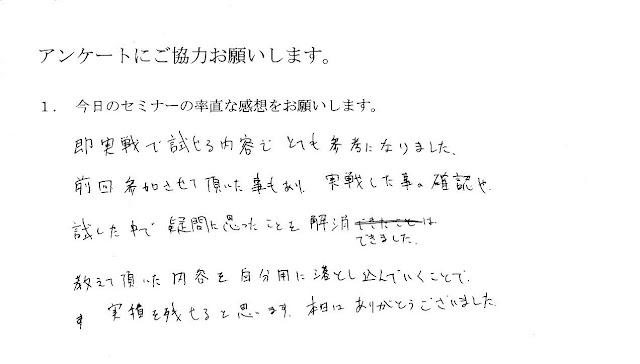 アンケートにご協力お願いします。
1. 今日のセミナーの率直な感想をお願いします。
即実戦で試せる内容で とても参考になりました。
前回参加させて頂いた事もあり、実戦した事の確認や、
試した中で疑問に思ったことを解消できたことは
できました。
教えて頂いた内容を自分用に落とし込んでいくことで、
す 実積を残せると思います。本日はありがとうございました。